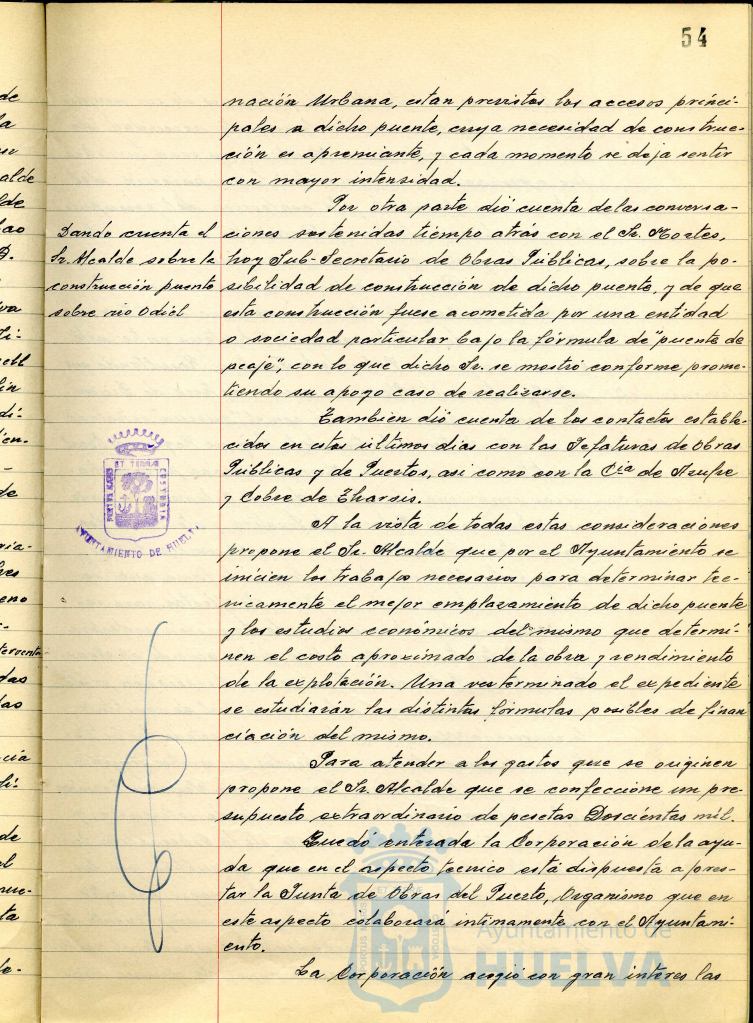 54
nación Urbana, estan previstos los accesos princi-
pales a dicho puente, cuya necesidad de construc-
ción es apremiante, y cada momento se deja sentir
con mayor intensidad.
Por otra parte dió cuenta de las conversa-
ciones sostenidas tiempo atrás con el Sr. Mortes,
hoy Sub-Secretario de Obras Públicas, sobre la po-
sibilidad de construcción de dicho puente, y de que
esta construcción fuese acometida por una entidad
o sociedad particular bajo la fórmula de "puente de
peaje", con lo que dicho Sr. se mostró conforme prome-
tiendo su apoyo caso de realizarse.
Dando cuenta el
Sr. Alcalde sobre la
construcción puente
sobre rio Odiel
Tambien dió cuenta de los contactos estable-
cidos en estos últimos dias con las Jefaturas de Obras
Públicas y de Puertos, asi como con la Cía de Azufre
y Cobre de Tharsis.
A la vista de todas estas consideraciones
propone el Sr. Alcalde que por el Ayuntamiento se
inicien los trabajos necesarios para determinar tec-
nicamente el mejor emplazamiento de dicho puente
y los estudios económicos del mismo que determi-
nen el costo aproximado de la obra y rendimiento
de la explotación. Una vez terminado el expediente
se estudiarán las distintas fórmulas posibles de finan
ciación del mismo.
Para atender a los gastos que se originen
propone el Sr. Alcalde que se confeccione un pre-
supuesto extraordinario de pesetas Doscientas mil.
Quedó enterada la Corporación de la ayu-
da que en el aspecto tecnico está dispuesta a pres-
tar la Junta de Obras del Puerto, Organismo que en
este aspecto colaborará intimamente con el Ayuntami-
ento.
La Corporación acogió con gran interes las
AYUNTAMIENTO DE HUELVA
Ayuntamiento de
HUELVA